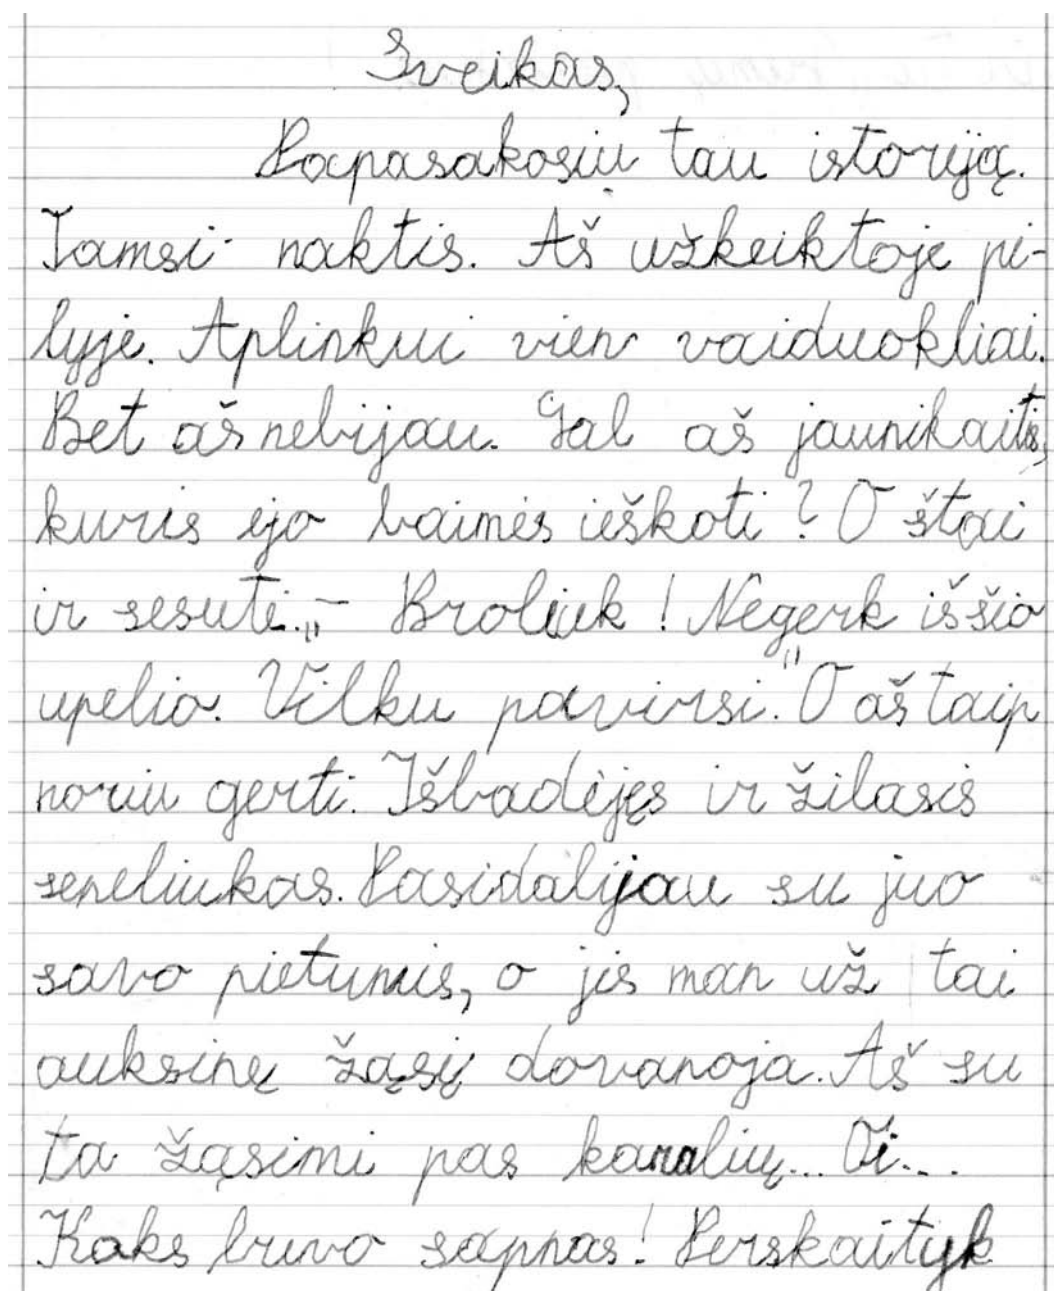 Sveikas,
Papasakosiu tau istoriją.
Tamsi naktis. Aš užkeiktoje pi-
lyje. Aplinkui vien vaiduokliai.
Bet aš nebijau. Gal aš jaunikaitis,
kuris ėjo baimės ieškoti? O štai
ir sesutė. „– Broliuk! Negerk iš šio
upelio. Vilku pavirsi." O aš taip
noriu gerti. Išbadėjęs ir žilasis
seneliukas. Pasidalijau su juo
savo pietumis, o jis man už tai
auksinę žąsį dovanoja. Aš su
ta žąsimi pas karalių... Oi...
Koks buvo sapnas! Perskaityk